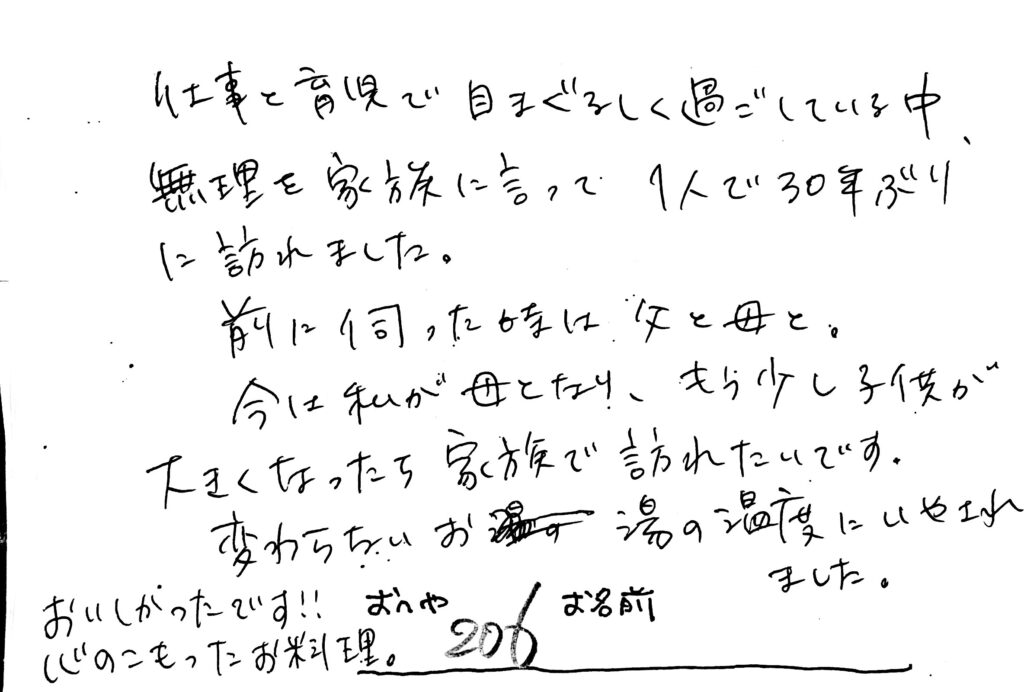 仕事と育児で目まぐるしく過ごしている中、
無理を家族に言って 1人で30年ぶり
に訪れました。
前に伺った時は 父と母と。
今は私が母となり、もう少し子供が
大きくなったら家族で訪れたいです。
変わらないお 湯の温度にいやされ
ました。
おいしかったです!!
心のこもったお料理。
おへや 206 お名前